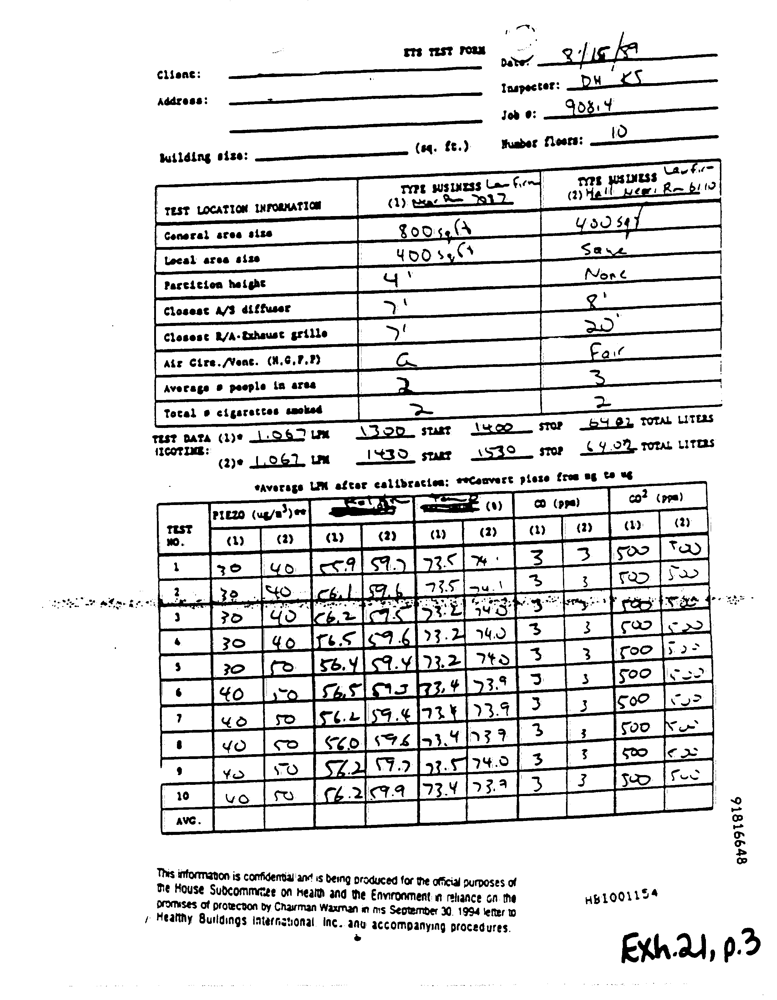 ETS TEST FORM
Date: 8/15/89
Client:
Inspector: DH KS
Address:
Job #: 908.4
(sq. ft.)
Number floors: 10
Building size:
TEST LOCATION INFORMATION
TYPE BUSINESS Law firm
(1) Near Rm 7037
TYPE BUSINESS Law firm
(2) Hall Near Rm 6110
General area size 800 sq ft 400 sq f
Local area size 400 sq ft Same
Partition height 4' None
Closest A/S diffuser 7' 8'
Closest R/A-Exhaust grille 7' 20'
Air Circ./Vent. (N,G,F,P) G Fair
Average # people in area 2 3
Total # cigarettes smoked 2 2
TEST DATA (1)* 1.067 LPM 1300 START 1400 STOP 64.02 TOTAL LITERS
NICOTINE:
(2)* 1.067 LPM 1430 START 1530 STOP 64.02 TOTAL LITERS
*Average LPM after calibration; **Convert piezo from mg to ug
TEST NO. PIEZO (ug/m³)** (%) CO (ppm) CO² (ppm)
(1) (2) (1) (2) (1) (2) (1) (2) (1) (2)
1 30 40 55.9 59.7 73.5 74. 3 3 500 500
2 30 40 56.1 59.6 73.5 74.1 3 3 500 500
3 30 40 56.2 59.5 73.2 74.0 3 3 500 500
4 30 40 56.5 59.6 73.2 74.0 3 3 500 500
5 30 50 56.4 59.4 73.2 740 3 3 500 500
6 40 50 56.5 73.4 73.9 3 3 500 500
7 40 50 56.2 59.4 73.4 73.9 3 3 500 500
8 40 50 56.0 59.6 73.4 739 3 3 500 500
9 40 50 56.2 59.7 73.5 74.0 3 3 500 500
10 40 50 56.2 59.9 73.4 73.9 3 3 500 500
AVG.
91816648
This information is confidential and is being produced for the official purposes of
the House Subcommittee on Health and the Environment in reliance on the
promises of protection by Chairman Waxman in his September 30, 1994 letter to
Healthy Buildings International, Inc. and accompanying procedures.
HBI001154
Exh.21, p.3